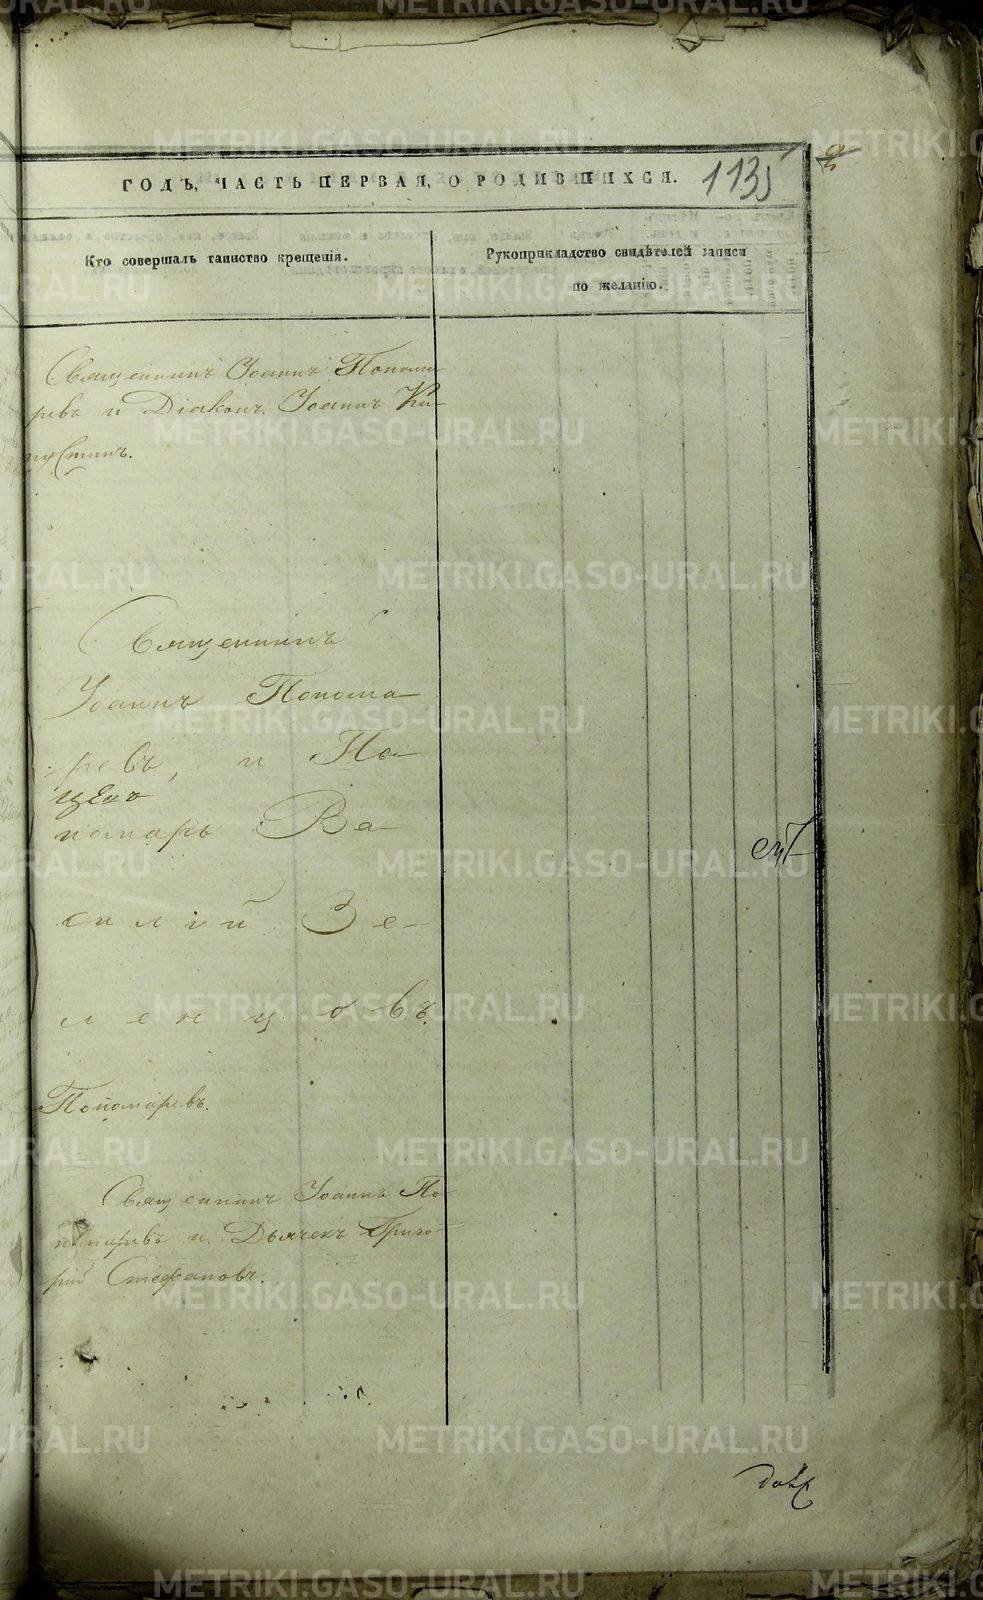 ГОДЪ, ЧАСТЬ ПЕРВАЯ, О РОДИВШИХСЯ. 1135
Кто совершалъ таинство крещенія.
Рукоприкладство свидѣтелей записи
по желанію.
Священникъ Іоаннъ Понома-
ревъ и Діаконъ Іоаннъ Ка-
пустинъ.
Священникъ
Іоаннъ Понома-
ревъ, и По-
номарь Ва-
силій Зе-
ленцовъ.
Пономаревъ.
Священникъ Іоаннъ По-
номаревъ и Дьячекъ Григо-
рій Стефановъ.
METRIKI.GASO-URAL.RU